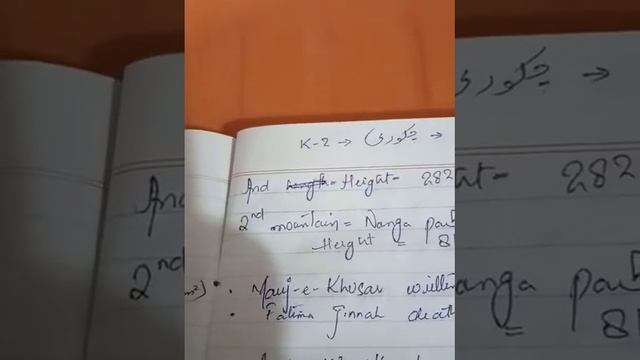 K-2 → چکوری →
And Height - 282
2nd mountain = Nanga par
Height = 8
• Mauj-e-Khusar written
• Fatima Jinnah death